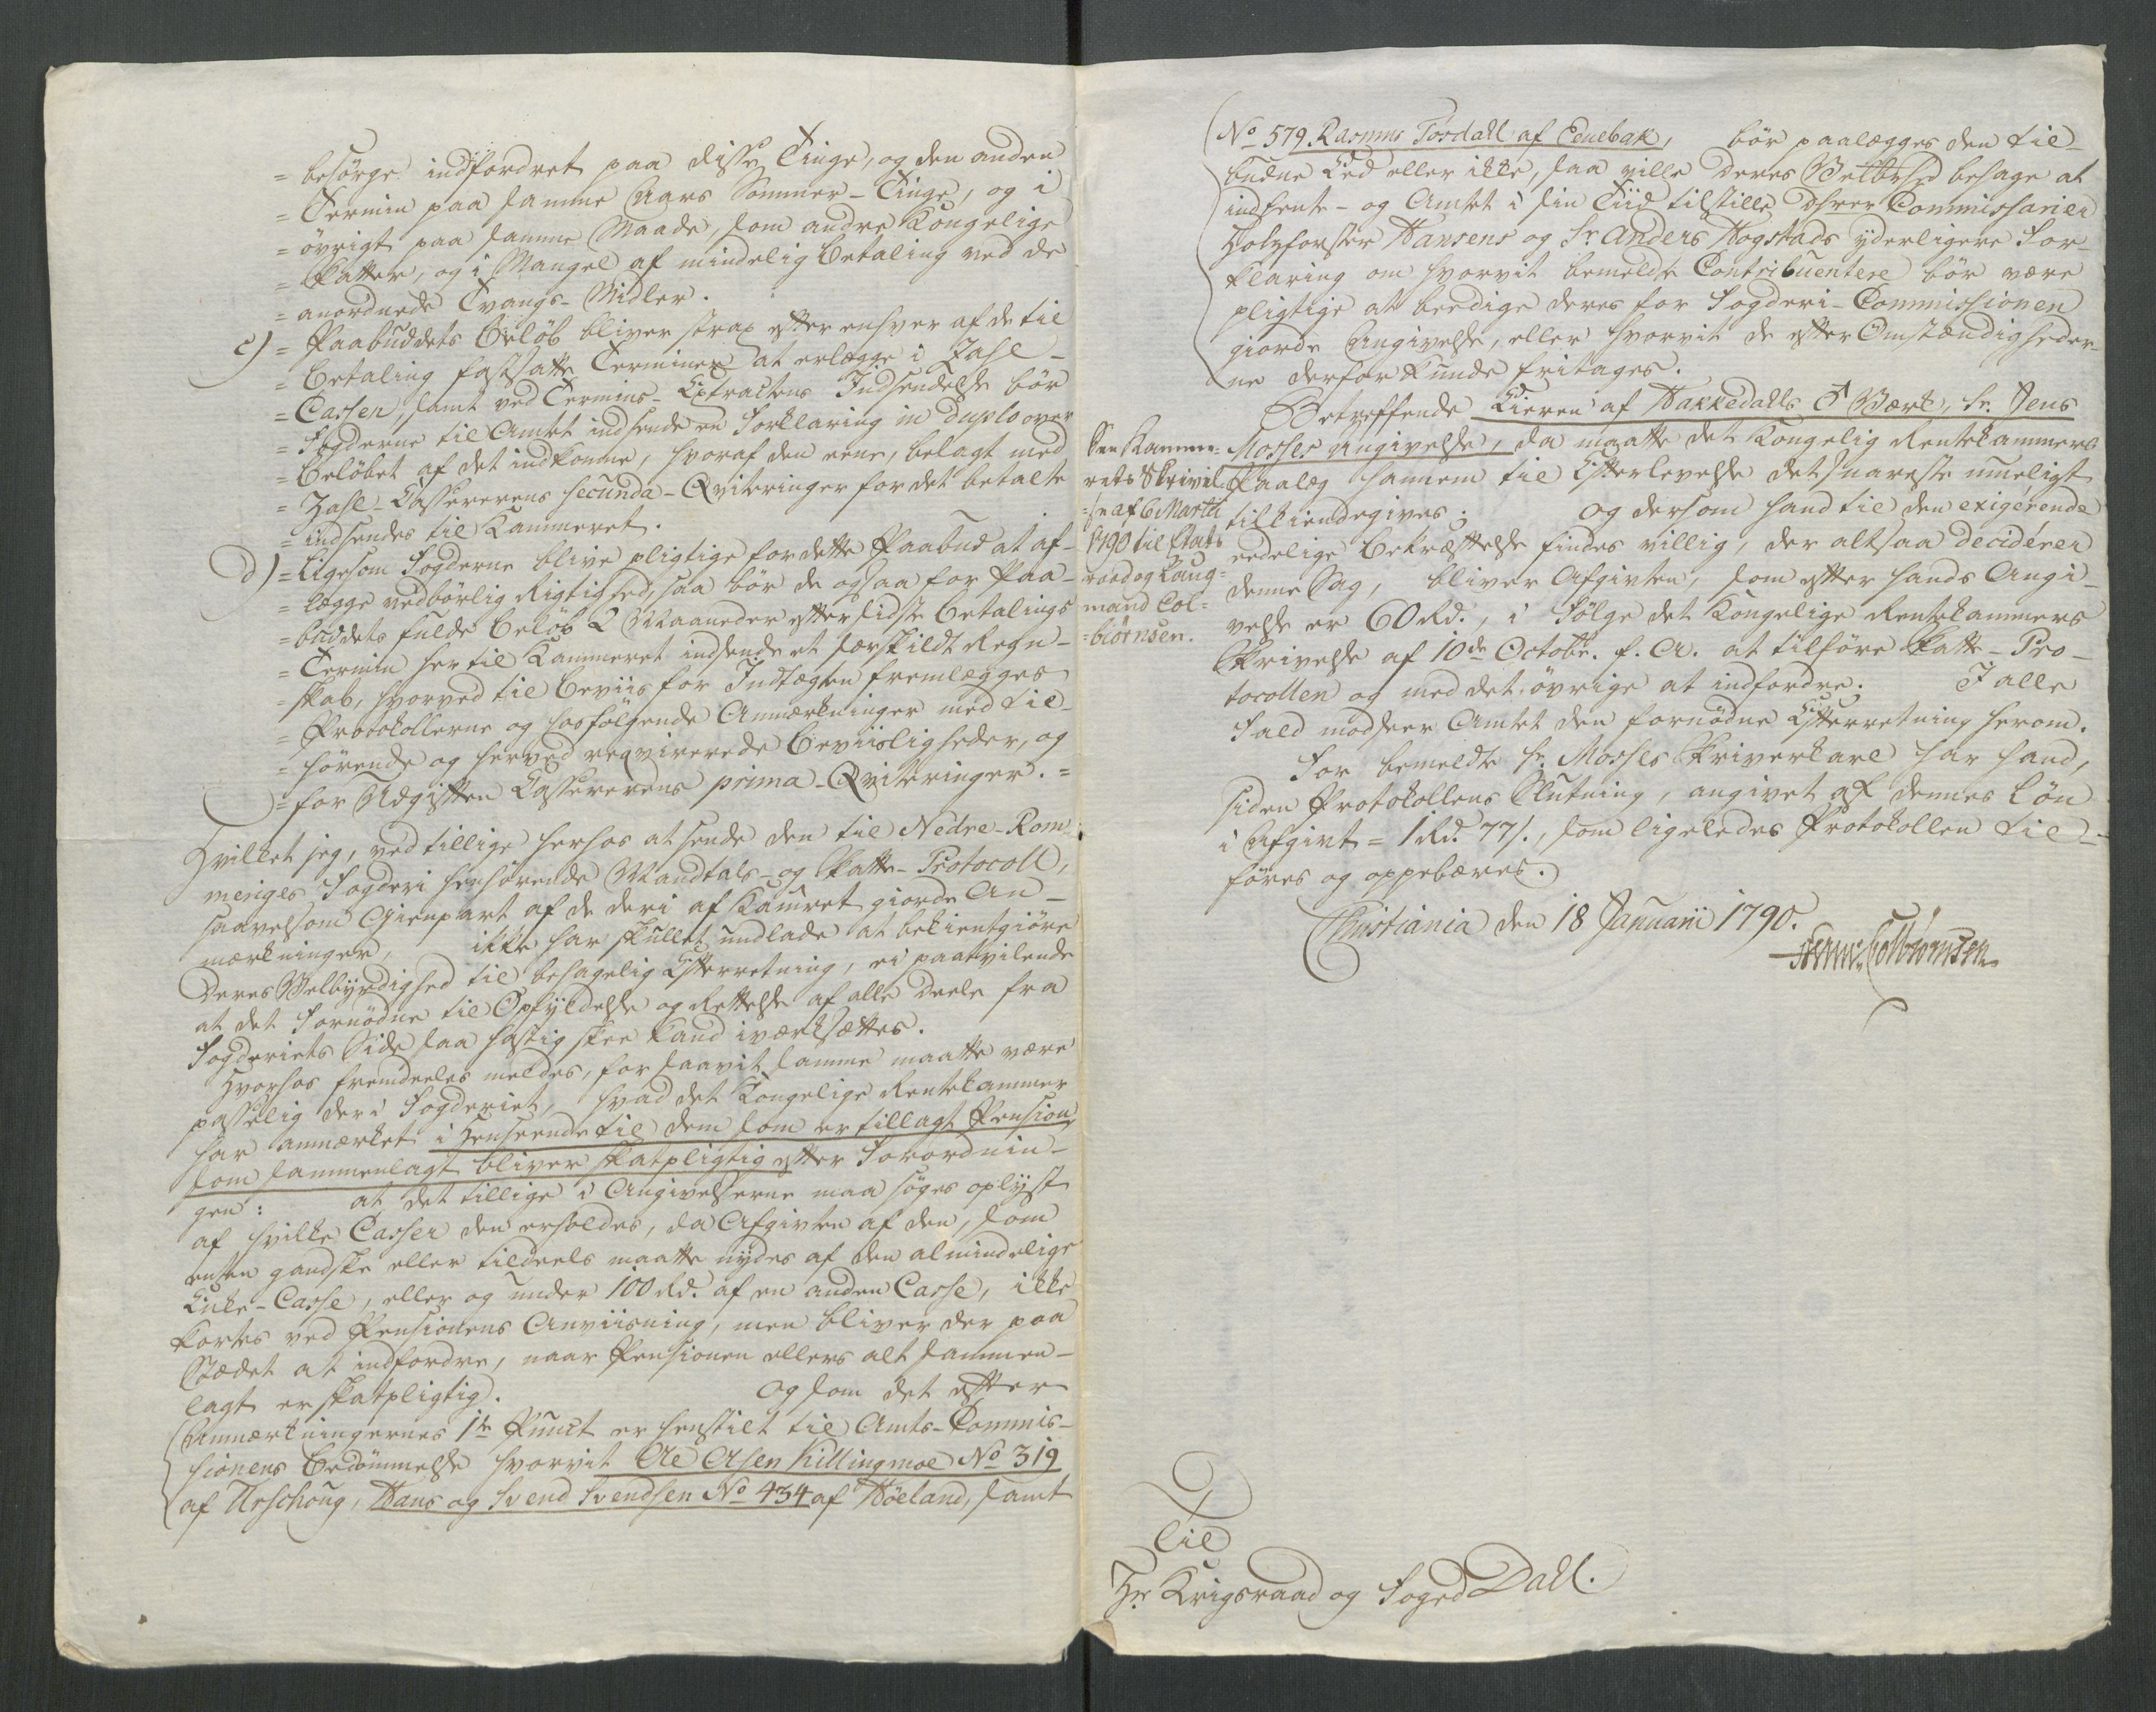 = besörge indfordret paa disse Tinge, og den anden
= Termin paa samme Aars Sommer-Tinge, og i
= övrigt paa samme Maade, som andre Kongelige
= Skatter, og i Mangel af mindelig Betaling ved de
= anordnede Tvangs-Midler.
c) = Paabuddets Belöb bliver strax efter enhver af de til
= Betaling fastsatte Terminer at erlægge i Zahl-
= Cassen, samt ved Termins-Extractens Indsendelse bör
= Fogderne til Amtet indsende en Forklaring in duplo over
= Belöbet af det indkomne, hvoraf den eene, belagt med
= Zahl-Cassererens secunda-Qviteringer for det betalte
= indsendes til Kammeret.
d) = Ligesom Fogderne blive pligtige for dette Paabud at af-
= lægge vedbörlig Rigtighed, saa bör de ogsaa for Paa-
= buddets fulde Belöb 2 Maaneder efter sidste Betalings
= Termin her til Kammeret indsende et særskildt Regn-
= skab, hvorved til Beviis for Indtægten fremlægges
= Protokollerne og hosfölgende Anmærkninger med til-
= hörende og herved reqvirerede Beviisligheder, og
= for Udgiften Cassererens prima-Qviteringer. =
Hvilket jeg, ved tillige herhos at sende den til Nedre-Rom-
meriges Fogderi henhörende Mandtals- og Skatte-Protocoll,
saavelsom Gienpart af de deri af Kamret giorde An-
mærkninger, ikke har skullet undlade at bekientgiöre
Deres Velbyrdighed til behagelig Efterretning, ei paatvilende
at det Fornödne til Opfyldelse og Rettelse af alle Deele fra
Fogderiets Side saa hastig skee kand iværksættes.
Hvorhos fremdeeles meldes, for saavit samme maatte være
passelig der i Fogderiet, hvad det Kongelige Rentekammer
har anmærket i Henseende til dem som er tillagt Pension
som sammenlagt bliver skatpligtig efter Forordnin-
gen: at det tillige i Angivelserne maa söges oplyst
af hvilke Casser den erholdes, da Afgivten af den, som
enten gandske eller tildeels maatte nydes af den almindelige
Enke-Casse, eller og under 100 Rd. af en anden Casse, ikke
kortes ved Pensionens Anviisning, men bliver der paa
Stædet at indfordre, naar Pensionen ellers alt sammen-
lagt er skatpligtig. Og som det efter
Anmærkningernes 1te Punct er henstilt til Amts-Commis-
sionens Bedömmelse hvorvit Ole Olsen Killingmoe No 319
af Urschoug, Hans og Svend Svendsen No 434 af Höeland, samt
No 579 Rasmus Tosdahl af Enebak, bör paalægges den til-
budne Eed eller ikke, saa ville Deres Velbhd behage at
indhente- og Amtet i sin Tiid tilstille Dhrer Commissarier
Holzforster Hansens og Sr. Anders Hogstads yderligere For-
klaring om hvorvit bemeldte Contribuentere bör være
pligtige at beedige deres for Fogderi-Commissionen
giorde Angivelse, eller hvorvit de efter Omstændigheder-
ne derfor kunde fritages.
Betreffende Eieren af Hakkedahls ♂ Værk, Hr. Jens
Mosses Angivelse, da maatte det Kongelig Rentekammers
Paalæg hannem til Efterlevelse det snareste mueligt
tilkiendegives; og dersom hand til den exigérende
eedelige Bekræftelse findes villig, der altsaa decidérer
denne Sag, bliver Afgivten, som efter hands Angi-
velse er 60 Rd., i Fölge det Kongelige Rentekammers
Skrivelse af 10de Octobr. f. A. at tilföre Skatte-Pro-
tocollen og med det övrige at indfordre. I alle
Fald modseer Amtet den fornödne Efterretning herom.
For bemeldte Hr. Mosses Skriverkarl har hand,
siden Protokollens Slutning, angivet af dennes Lön
i Afgivt = 1 Rd. 77 s., som ligeledes Protokollen til-
föres og oppebæres.
See Kamme-
rets Skrivel-
se af 6 Martii
1790 til Etats
raad og Laug-
mand Col-
biörnsen.
Christiania den 18 Januarii 1790.
Colbiörnsen
Til
Hr Krigsraad og Foged Dahl.